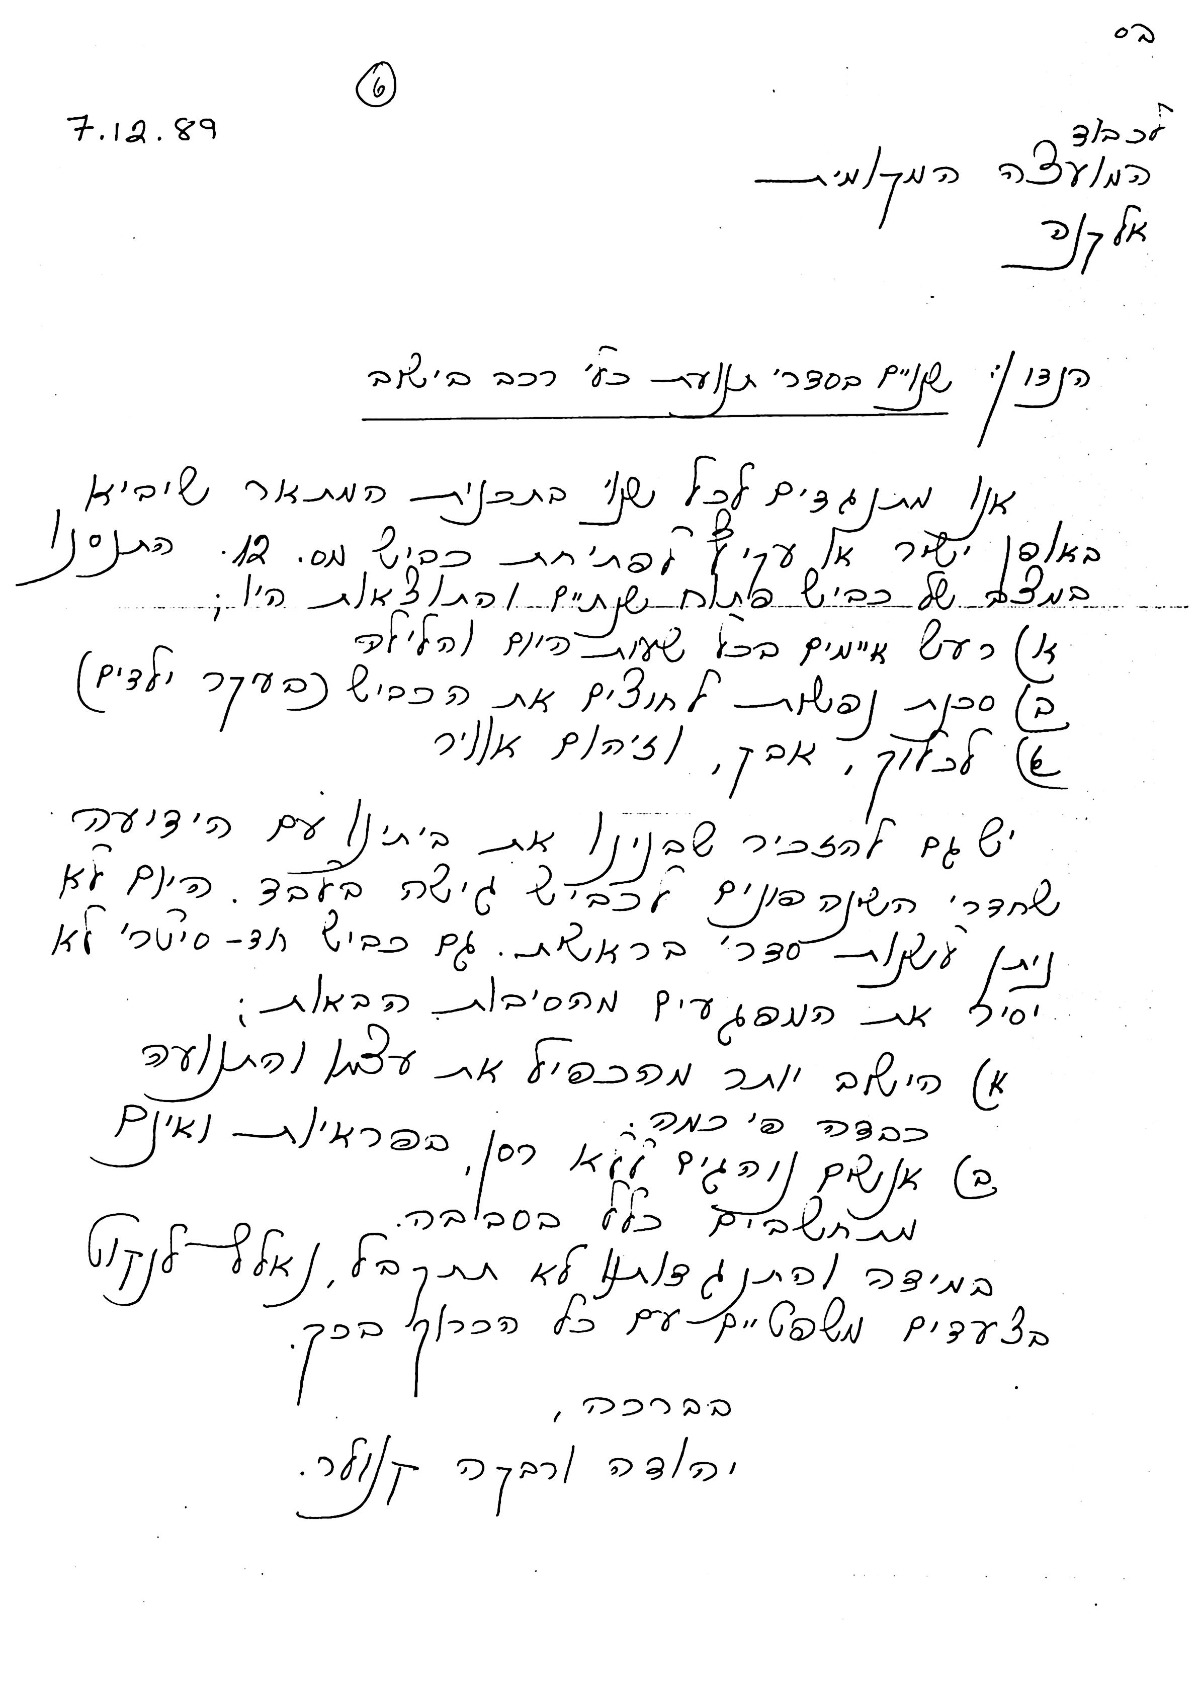 בס
6
7.12.89
לכבוד
המועצה המקומית
אלקנה
הנדון: שנויים בסדרי תנועת כלי רכב בישוב
אנו מתנגדים לכל שנוי בתכנית המתאר שיביא
באופן ישיר או עקיף לפתיחת כביש מס. 12. התנסנו
במצב של כביש פתוח שנתיים והתוצאות היו:
א) רעש איימים בכל שעות היום והלילה
ב) סכנת נפשות לחוצים את הכביש (בעיקר ילדים)
ג) לכלוך, אבק, וזיהום אוויר
יש גם להזכיר שבנינו את ביתינו עם הידיעה
שחדרי השינה פונים לכביש גישה בלבד. היום לא
ניתן לעשות סדרי בראשית. גם כביש חד-סיטרי לא
יסיר את המפגעים מהסיבות הבאות:
א) הישוב יותר מהכפיל את עצמו והתנועה
כבדה פי כמה.
ב) אנשים נוהגים ללא רסן, בפראיות ואינם
מתחשבים כלל בסביבה.
במידה והתנגדותנו לא תתקבל, נאלץ לנקוט
בצעדים משפטיים עם כל הכרוך בכך.
בברכה,
יהודה ורבקה קולר.